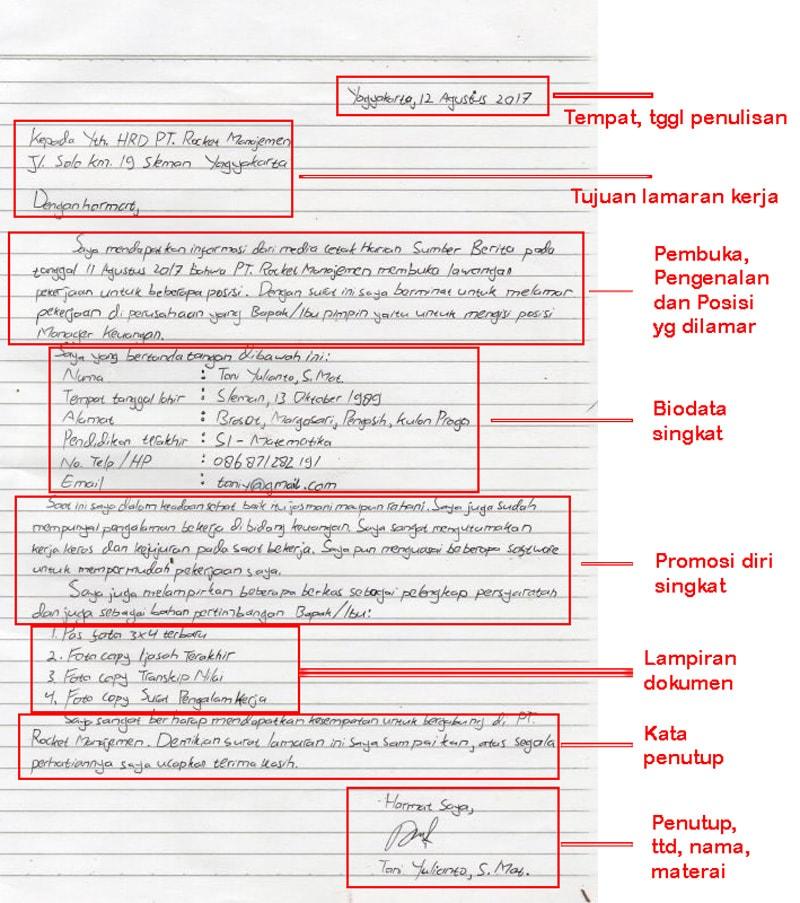 Yogyakarta, 12 Agustus 2017
Tempat, tggl penulisan
Kepada Yth. HRD PT. Rocket Manajemen
Jl. Solo km. 19 Sleman Yogyakarta
Tujuan lamaran kerja
Dengan hormat,
Saya mendapatkan informasi dari media cetak Harian Sumber Berita pada
tanggal 11 Agustus 2017 bahwa PT. Rocket Manajemen membuka lawangan
pekerjaan untuk beberapa posisi. Dengan surat ini saya berminat untuk melamar
pekerjaan di perusahaan yang Bapak/Ibu pimpin yaitu untuk mengisi posisi
Manager Keuangan.
Pembuka,
Pengenalan
dan Posisi
yg dilamar
Saya yang bertanda tangan dibawah ini:
Nama : Toni Yulianto, S. Mat.
Tempat tanggal lahir : Sleman, 13 Oktober 1989
Alamat : Brosot, Margosari, Pengasih, Kulon Progo
Pendidikan terakhir : S1 - Matematika
No. Telp/HP : 086871282191
Email : toniy@gmail.com
Biodata
singkat
Saat ini saya dalam keadaan sehat baik itu jasmani maupun rohani. Saya juga sudah
mempunyai pengalaman bekerja di bidang keuangan. Saya sangat mengutamakan
kerja keras dan kejujuran pada saat bekerja. Saya pun menguasai beberapa software
untuk mempermudah pekerjaan saya.
Saya juga melampirkan beberapa berkas sebagai pelengkap persyaratan
dan juga sebagai bahan pertimbangan Bapak/Ibu:
Promosi diri
singkat
1. Pas foto 3x4 terbaru
2. Foto copy Ijasah Terakhir
3. Foto copy Transkip Nilai
4. Foto copy Surat Pengalam Kerja
Lampiran
dokumen
Saya sangat berharap mendapatkan kesempatan untuk bergabung di PT.
Rocket Manajemen. Demikan surat lamaran ini saya sampaikan, atas segala
perhatiannya saya ucapkan terima kasih.
Kata
penutup
Hormat Saya,
Toni Yulianto, S. Mat.
Penutup,
ttd, nama,
materai